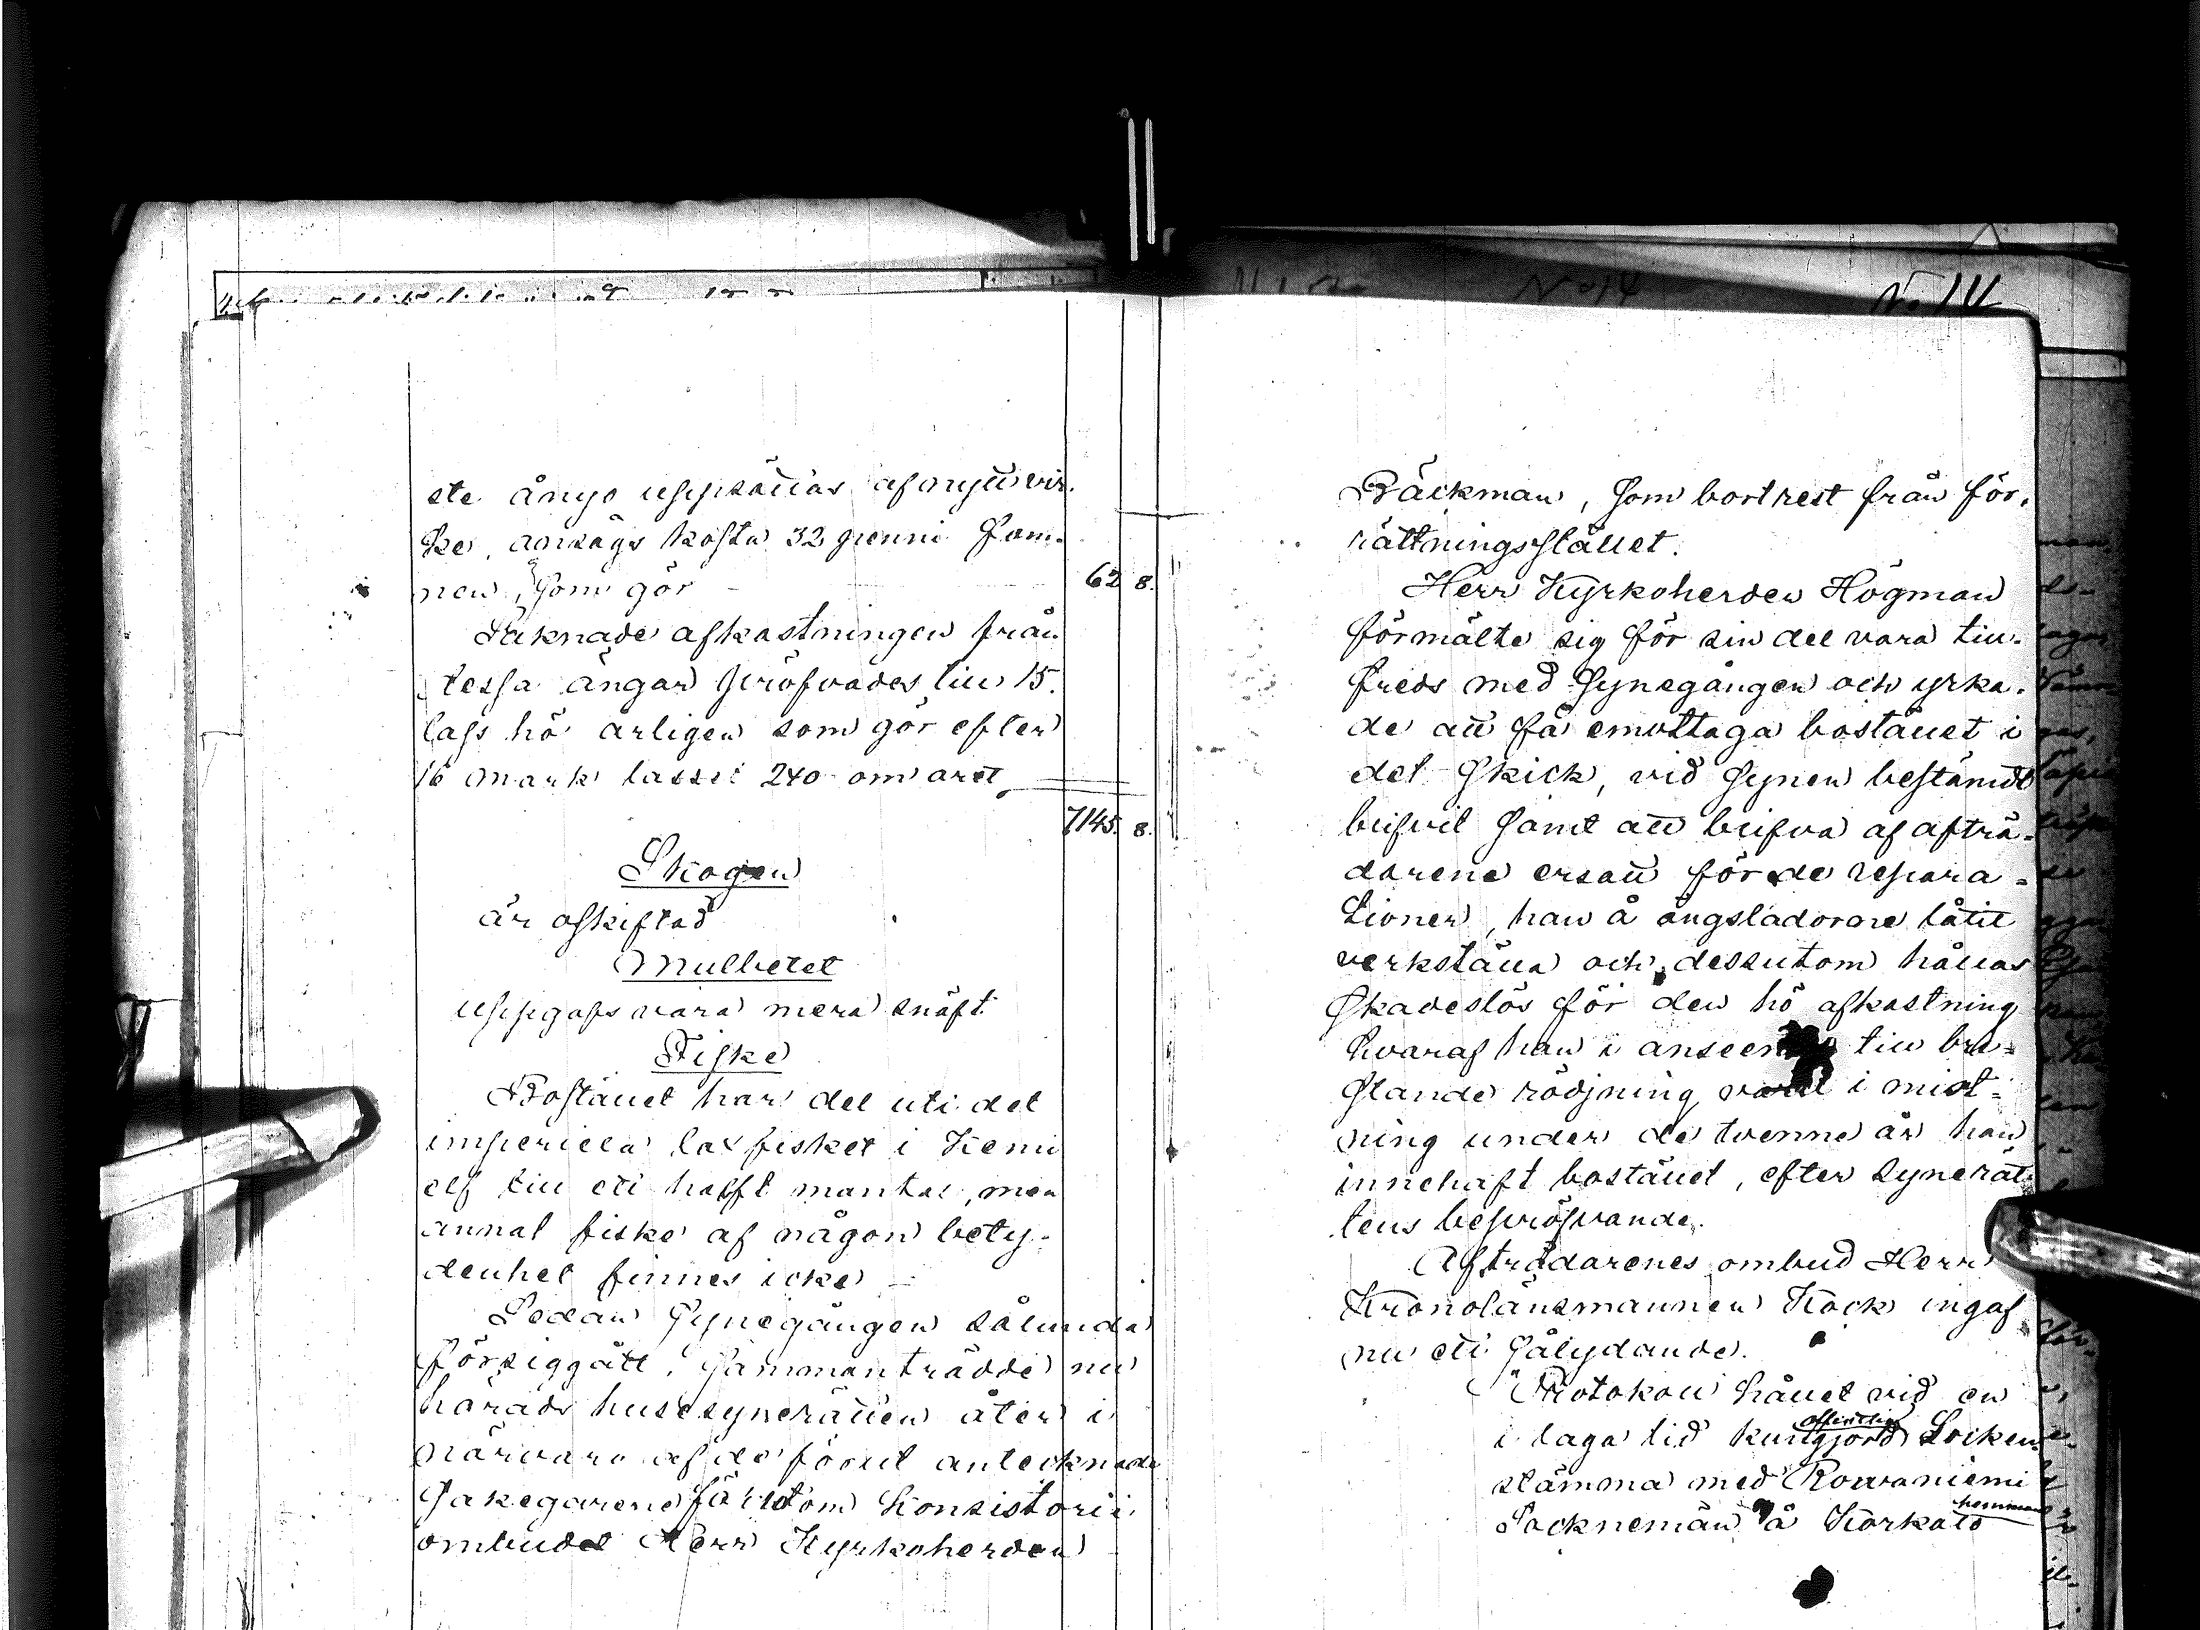 ste ånyo uppsättas af nytt vir-
ke, ansågs kosta 32 penni fam-
nen, som gör 62 8.
Saknade afkastningen från
dessa ängar pröfvades till 15.
lass hö årligen som gör efter
16 mark lasset 240 om året
7145. 8.
Skogen
är oskiftad
Mulbetet
uppgafs vara mera knapt
Fiske
Bostället har del uti det
imperiella laxfisket i Kemi
elf till ett halft mantal, men
annat fiske af någon bety-
denhet finnes icke
Sedan Synegången sålunda
försiggått, sammanträdde nu
härads husesynerätten åter i
närvaro af de förut antecknade
Sakegarene förutom Konsistorii
ombudet Herr Kyrkoherden
No 14
No 14
Bäckman, som bortrest från för-
rättningsstället.
Herr Kyrkoherden Högman
förmälte sig för sin del vara till-
freds med Synegången och yrka-
de att få emottaga bostället i
det Skick, vid Synen bestämdt
blifvit samt att blifva af afträ-
darene ersatt för de repara-
tioner, han å ängsladorne låtit
verkställa och dessutom hållas
Skadeslös för den hö afkastning
hvaraf han i anseende till bri-
stande rödjning varit i mist-
ning under de tvenne år han
innehaft bostället, efter Synerät-
tens bepröfvande.
Afträdarenes ombud Herr
Kronolänsmannen Kock ingaf
nu ett sålydande.
"Protokoll hållet vid en
offentlig
i laga tid kungjord Socken-
stämma med Rovaniemi
hemman
Sockenemän å Korkalo